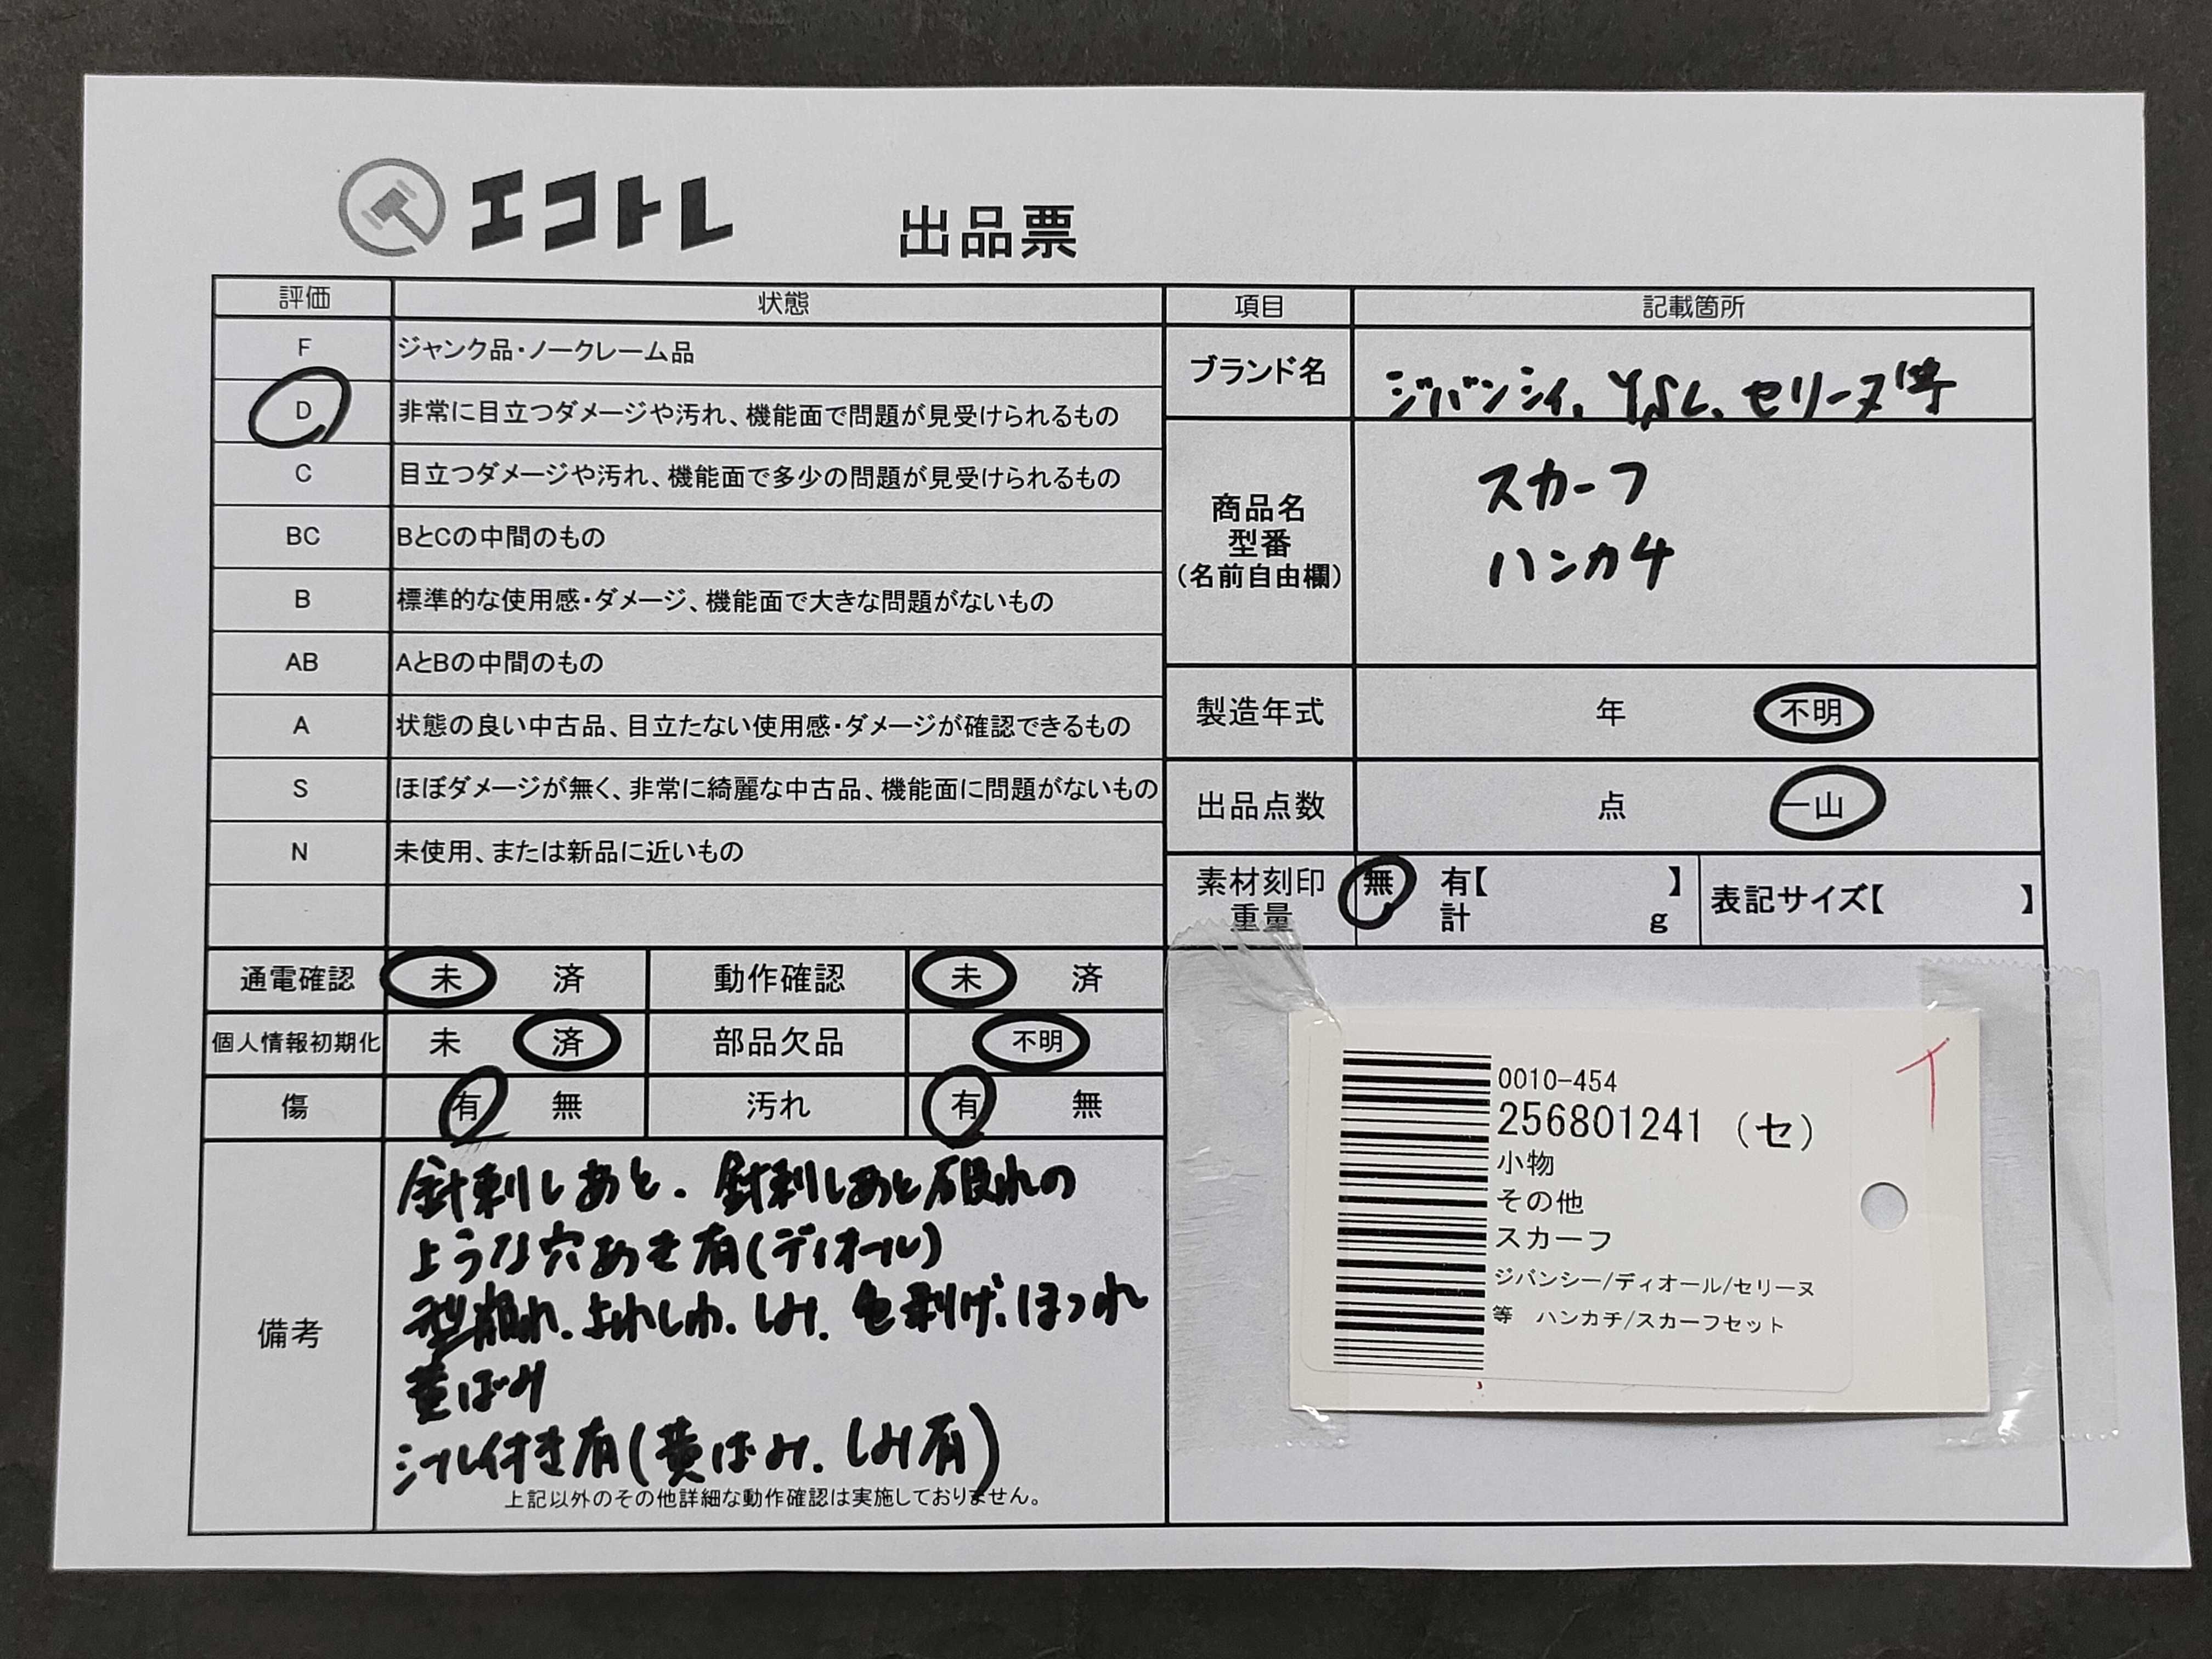 エコトレ 出品票
評価 状態
F ジャンク品・ノークレーム品
D 非常に目立つダメージや汚れ、機能面で問題が見受けられるもの
C 目立つダメージや汚れ、機能面で多少の問題が見受けられるもの
BC BとCの中間のもの
B 標準的な使用感・ダメージ、機能面で大きな問題がないもの
AB AとBの中間のもの
A 状態の良い中古品、目立たない使用感・ダメージが確認できるもの
S ほぼダメージが無く、非常に綺麗な中古品、機能面に問題がないもの
N 未使用、または新品に近いもの
通電確認 未 済 動作確認 未 済
個人情報初期化 未 済 部品欠品 不明
傷 有 無 汚れ 有 無
備考
針刺しあと、針刺しあと破れの
ような穴あき有(ディオール)
型崩れ、よれしわ、しみ、色剥げ、ほつれ
黄ばみ
シール付き有(黄ばみ、しみ有)
上記以外のその他詳細な動作確認は実施しておりません。
項目 記載箇所
ブランド名 ジバンシィ、YSL、セリーヌ等
商品名
型番
(名前自由欄)
スカーフ
ハンカチ
製造年式 年 不明
出品点数 点 一山
素材刻印 無 有【 】
重量 計 g
表記サイズ【 】
0010-454
256801241 (セ)
小物
その他
スカーフ
ジバンシー/ディオール/セリーヌ
等 ハンカチ/スカーフセット
イ